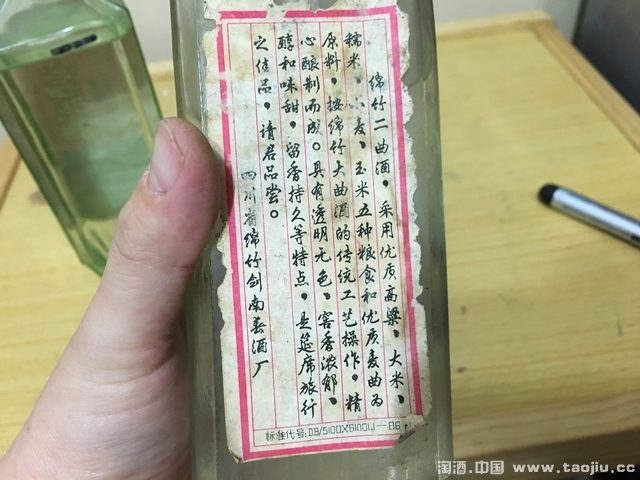 绵竹二曲酒，采用优质高粱、大米、
糯米、小麦、玉米五种粮食和优质麦曲为
原料，按绵竹大曲酒的传统工艺操作，精
心酿制而成。具有透明无色、窖香浓郁、
醇和味甜，留香持久等特点，是筵席旅行
之佳品，请君品尝。
四川省绵竹剑南春酒厂
标准代号:DB/5100X61001J—86
淘酒.中国 www.taojiu.cc